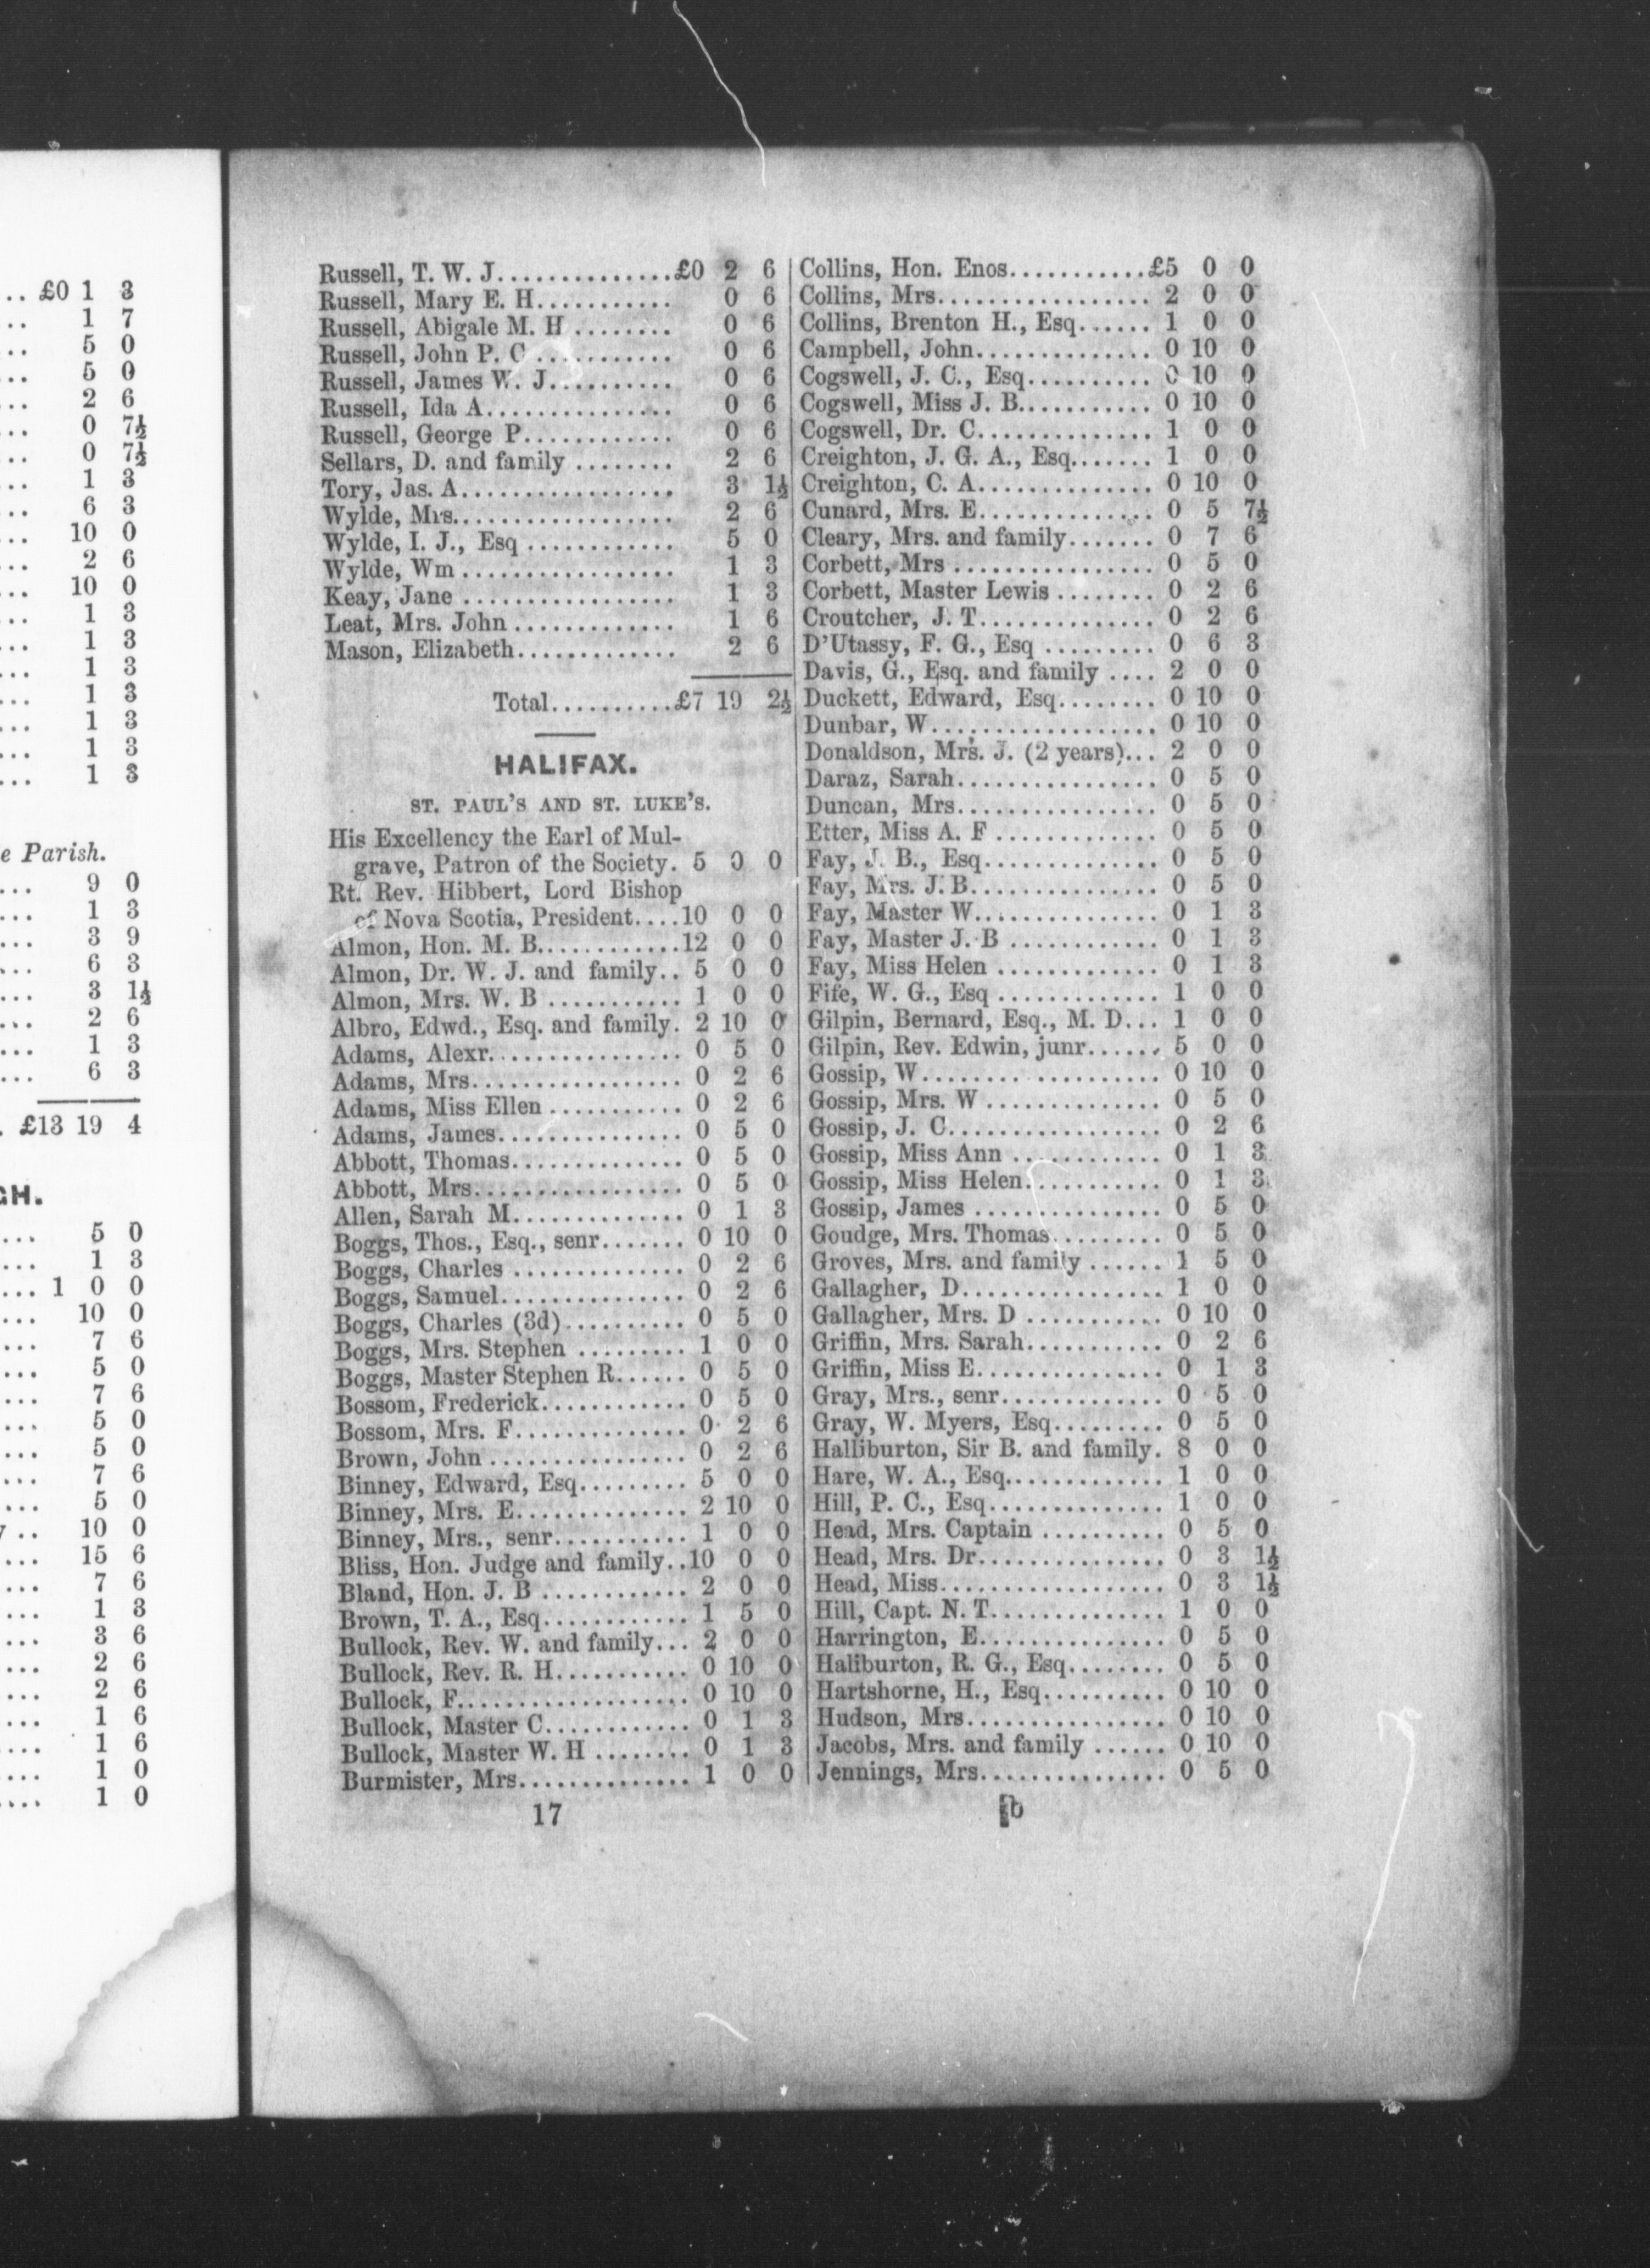 .. £0 1 3
... 1 7
... 5 0
... 5 0
... 2 6
... 0 7½
... 0 7½
... 1 3
... 6 3
... 10 0
... 2 6
... 10 0
... 1 3
... 1 3
... 1 3
... 1 3
... 1 3
... 1 3
... 1 3
e Parish.
... 9 0
... 1 3
... 3 9
... 6 3
... 3 1½
... 2 6
... 1 3
... 6 3
. £13 19 4
GH.
... 5 0
... 1 3
... 1 0 0
... 10 0
... 7 6
... 5 0
... 7 6
... 5 0
... 5 0
... 7 6
... 5 0
.. 10 0
... 15 6
... 7 6
... 1 3
... 3 6
... 2 6
... 2 6
... 1 6
... 1 6
... 1 0
.... 1 0
Russell, T. W. J..............£0 2 6
Russell, Mary E. H........... 0 6
Russell, Abigale M. H ........ 0 6
Russell, John P. C ........... 0 6
Russell, James W. J.......... 0 6
Russell, Ida A............... 0 6
Russell, George P............ 0 6
Sellars, D. and family ........ 2 6
Tory, Jas. A.................. 3 1½
Wylde, Mrs................... 2 6
Wylde, I. J., Esq ............ 5 0
Wylde, Wm .................. 1 3
Keay, Jane .................. 1 3
Leat, Mrs. John .............. 1 6
Mason, Elizabeth............. 2 6
Total..........£7 19 2½
HALIFAX.
ST. PAUL'S AND ST. LUKE'S.
His Excellency the Earl of Mul-
grave, Patron of the Society. 5 0 0
Rt. Rev. Hibbert, Lord Bishop
of Nova Scotia, President....10 0 0
Almon, Hon. M. B............12 0 0
Almon, Dr. W. J. and family.. 5 0 0
Almon, Mrs. W. B ........... 1 0 0
Albro, Edwd., Esq. and family. 2 10 0
Adams, Alexr................ 0 5 0
Adams, Mrs................. 0 2 6
Adams, Miss Ellen ........... 0 2 6
Adams, James............... 0 5 0
Abbott, Thomas.............. 0 5 0
Abbott, Mrs................. 0 5 0
Allen, Sarah M.............. 0 1 3
Boggs, Thos., Esq., senr....... 0 10 0
Boggs, Charles .............. 0 2 6
Boggs, Samuel............... 0 2 6
Boggs, Charles (3d).......... 0 5 0
Boggs, Mrs. Stephen ......... 1 0 0
Boggs, Master Stephen R...... 0 5 0
Bossom, Frederick............ 0 5 0
Bossom, Mrs. F.............. 0 2 6
Brown, John ................ 0 2 6
Binney, Edward, Esq......... 5 0 0
Binney, Mrs. E.............. 2 10 0
Binney, Mrs., senr........... 1 0 0
Bliss, Hon. Judge and family..10 0 0
Bland, Hon. J. B ............ 2 0 0
Brown, T. A., Esq............ 1 5 0
Bullock, Rev. W. and family... 2 0 0
Bullock, Rev. R. H........... 0 10 0
Bullock, F................... 0 10 0
Bullock, Master C............ 0 1 3
Bullock, Master W. H ........ 0 1 3
Burmister, Mrs.............. 1 0 0
17
Collins, Hon. Enos...........£5 0 0
Collins, Mrs................. 2 0 0
Collins, Brenton H., Esq...... 1 0 0
Campbell, John.............. 0 10 0
Cogswell, J. C., Esq.......... 0 10 0
Cogswell, Miss J. B........... 0 10 0
Cogswell, Dr. C.............. 1 0 0
Creighton, J. G. A., Esq....... 1 0 0
Creighton, C. A.............. 0 10 0
Cunard, Mrs. E.............. 0 5 7½
Cleary, Mrs. and family....... 0 7 6
Corbett, Mrs ................ 0 5 0
Corbett, Master Lewis ........ 0 2 6
Croutcher, J. T.............. 0 2 6
D'Utassy, F. G., Esq ......... 0 6 3
Davis, G., Esq. and family .... 2 0 0
Duckett, Edward, Esq........ 0 10 0
Dunbar, W.................. 0 10 0
Donaldson, Mrs. J. (2 years)... 2 0 0
Daraz, Sarah................ 0 5 0
Duncan, Mrs................ 0 5 0
Etter, Miss A. F ............. 0 5 0
Fay, J. B., Esq.............. 0 5 0
Fay, Mrs. J. B............... 0 5 0
Fay, Master W............... 0 1 3
Fay, Master J. B ............ 0 1 3
Fay, Miss Helen ............. 0 1 3
Fife, W. G., Esq ............. 1 0 0
Gilpin, Bernard, Esq., M. D... 1 0 0
Gilpin, Rev. Edwin, junr...... 5 0 0
Gossip, W................... 0 10 0
Gossip, Mrs. W .............. 0 5 0
Gossip, J. C................. 0 2 6
Gossip, Miss Ann ............ 0 1 3
Gossip, Miss Helen........... 0 1 3
Gossip, James ............... 0 5 0
Goudge, Mrs. Thomas......... 0 5 0
Groves, Mrs. and family ...... 1 5 0
Gallagher, D................. 1 0 0
Gallagher, Mrs. D ........... 0 10 0
Griffin, Mrs. Sarah........... 0 2 6
Griffin, Miss E............... 0 1 3
Gray, Mrs., senr............. 0 5 0
Gray, W. Myers, Esq......... 0 5 0
Halliburton, Sir B. and family. 8 0 0
Hare, W. A., Esq............. 1 0 0
Hill, P. C., Esq.............. 1 0 0
Head, Mrs. Captain .......... 0 5 0
Head, Mrs. Dr............... 0 3 1½
Head, Miss.................. 0 3 1½
Hill, Capt. N. T.............. 1 0 0
Harrington, E............... 0 5 0
Haliburton, R. G., Esq........ 0 5 0
Hartshorne, H., Esq.......... 0 10 0
Hudson, Mrs................ 0 10 0
Jacobs, Mrs. and family ...... 0 10 0
Jennings, Mrs............... 0 5 0
b